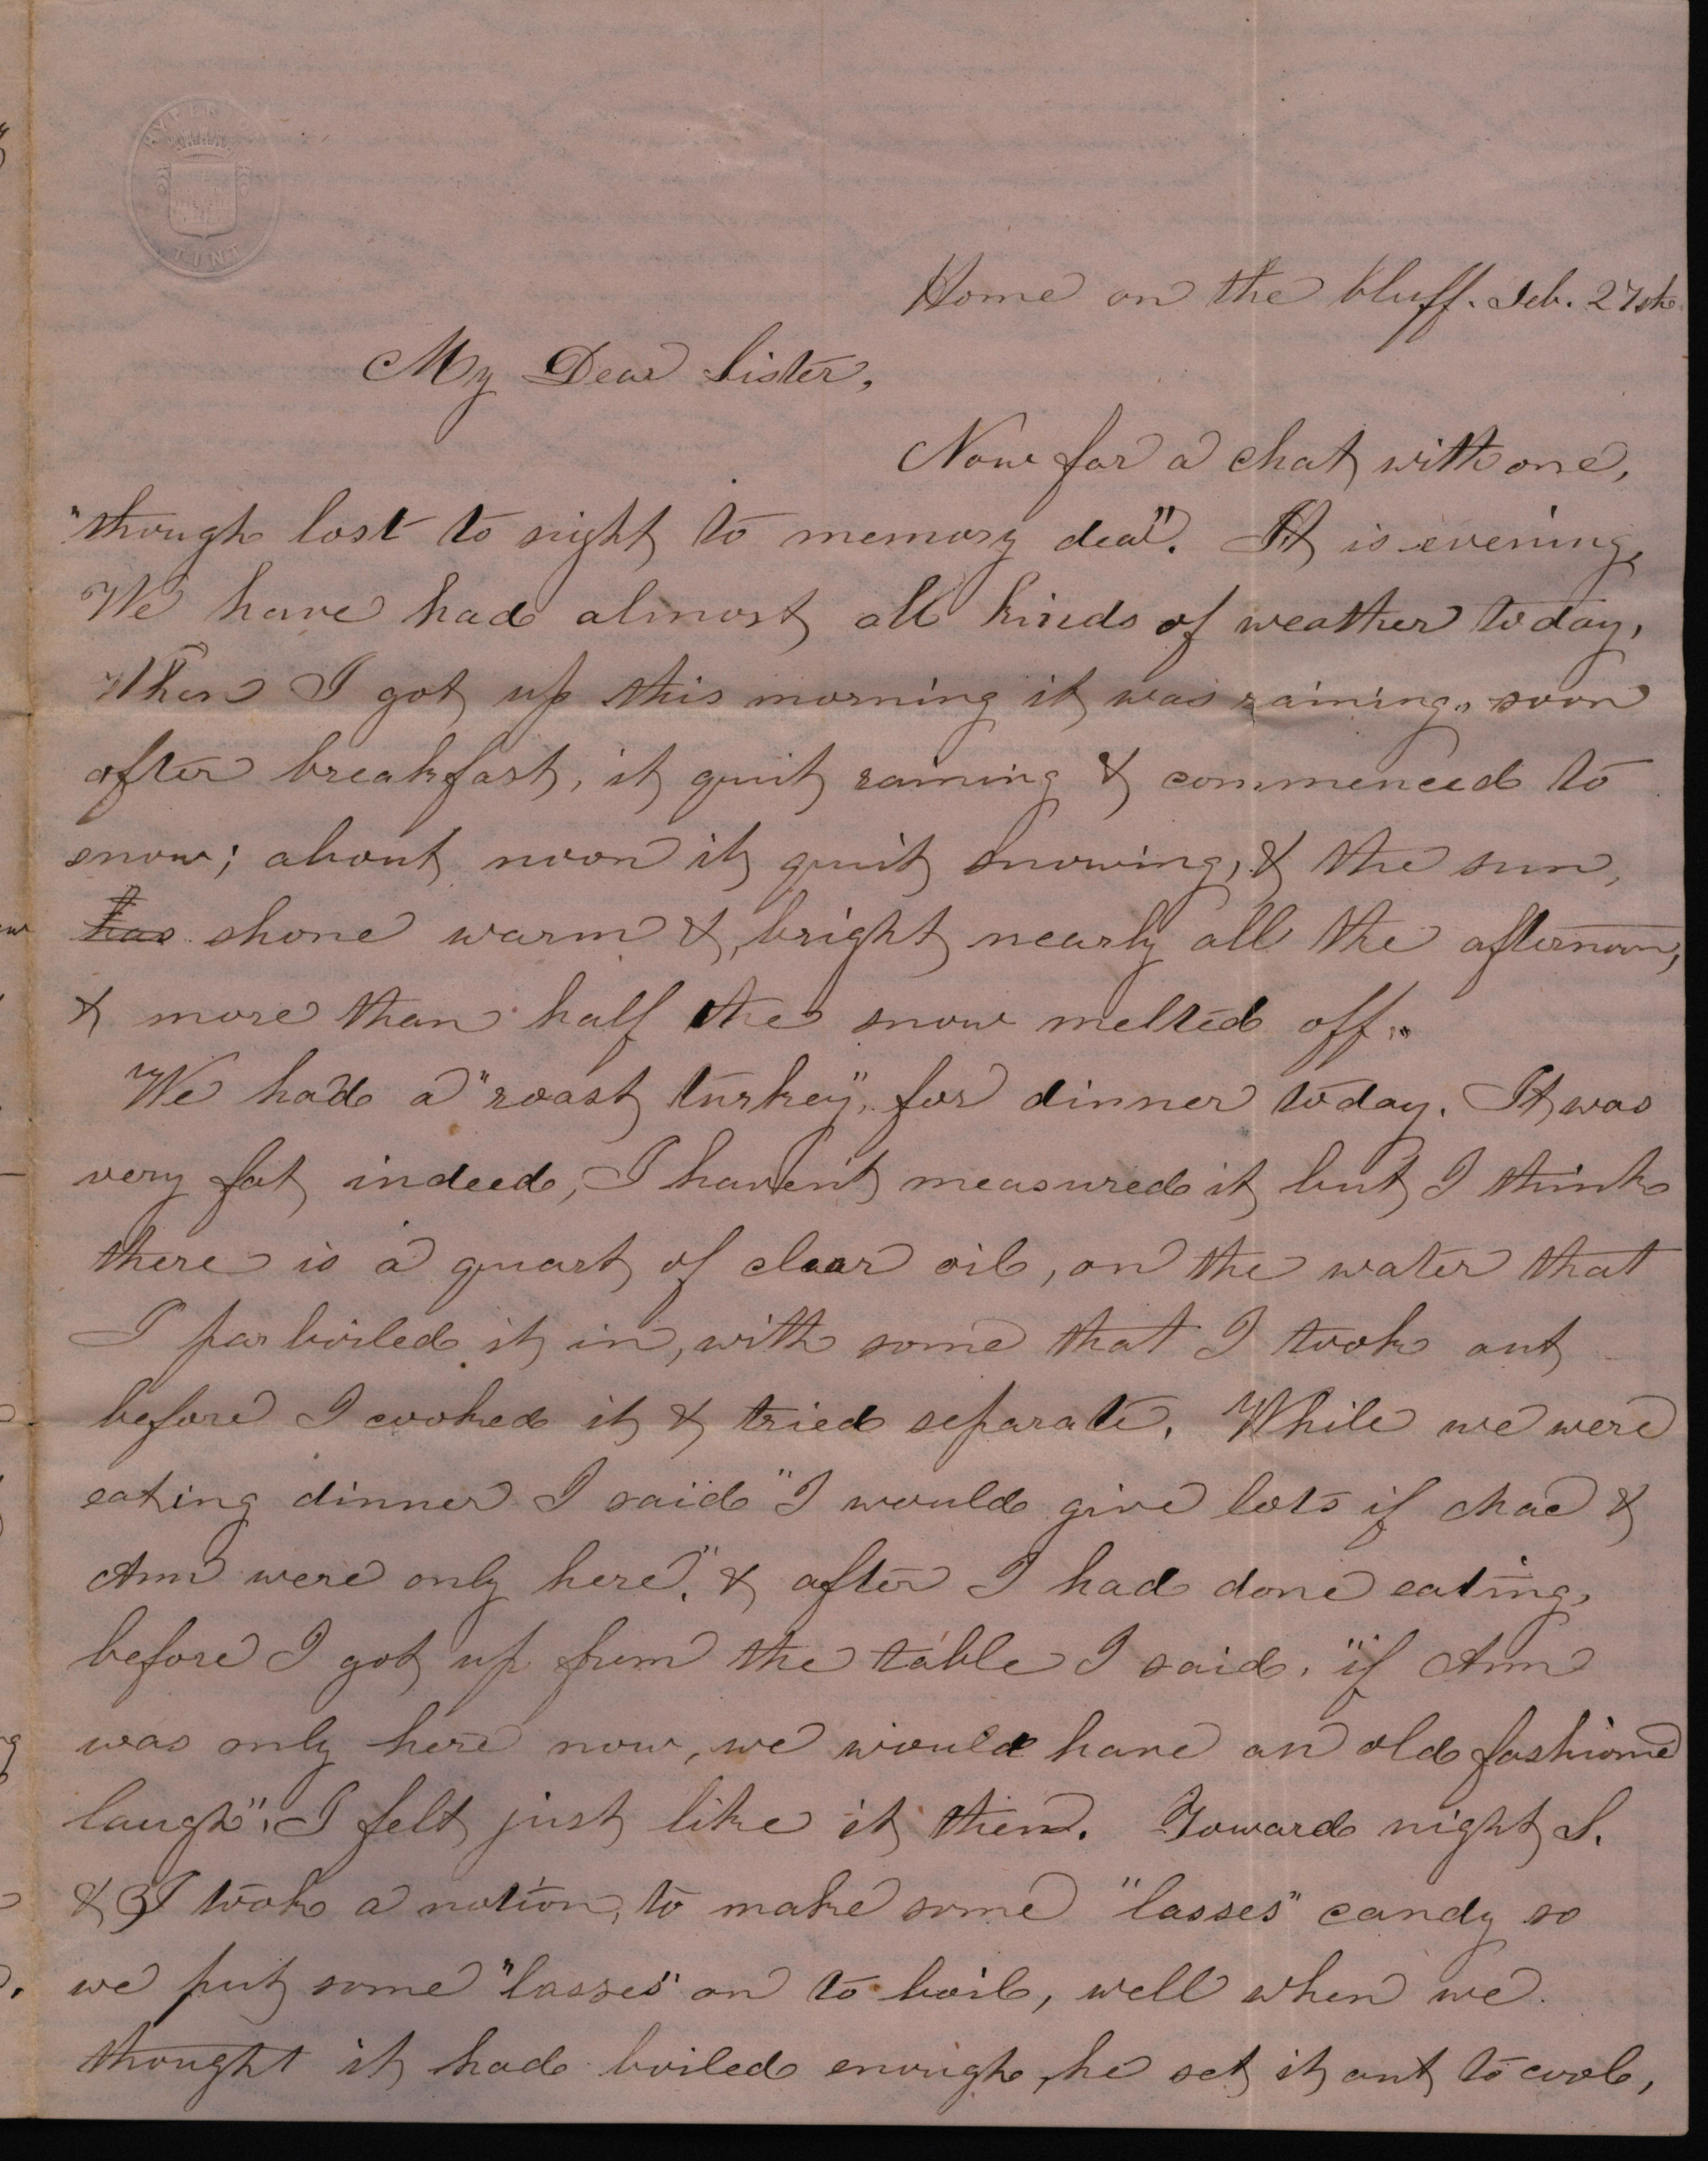 TINT
Home on the bluff. Feb. 27th
My Dear Sister,
Now for a chat with one,
"though lost to sight to memory dear". It is evening,
We have had almost all kinds of weather today,
When I got up this morning it was raining, soon
after breakfast, it quit raining & commenced to
snow; about noon it quit snowing, & the sun,
has shone warm & bright nearly all the afternoon,
& more than half the snow melted off.
We had a "roast turkey", for dinner today. It was
very fat indeed, I haven't measured it but I think
there is a quart of clear oil, on the water that
I par boiled it in, with some that I took out
before I cooked it & tried separate. While we were
eating dinner I said "I would give lots if Mac &
Ann were only here". & after I had done eating,
before I got up from the table I said, "if Ann
was only here now, we would have an old fashioned
laugh". I felt just like it then. Toward night S.
& I took a notion, to make some "lasses" candy so
we put some "lasses" on to boil, well when we
thought it had boiled enough he set it out to cool,